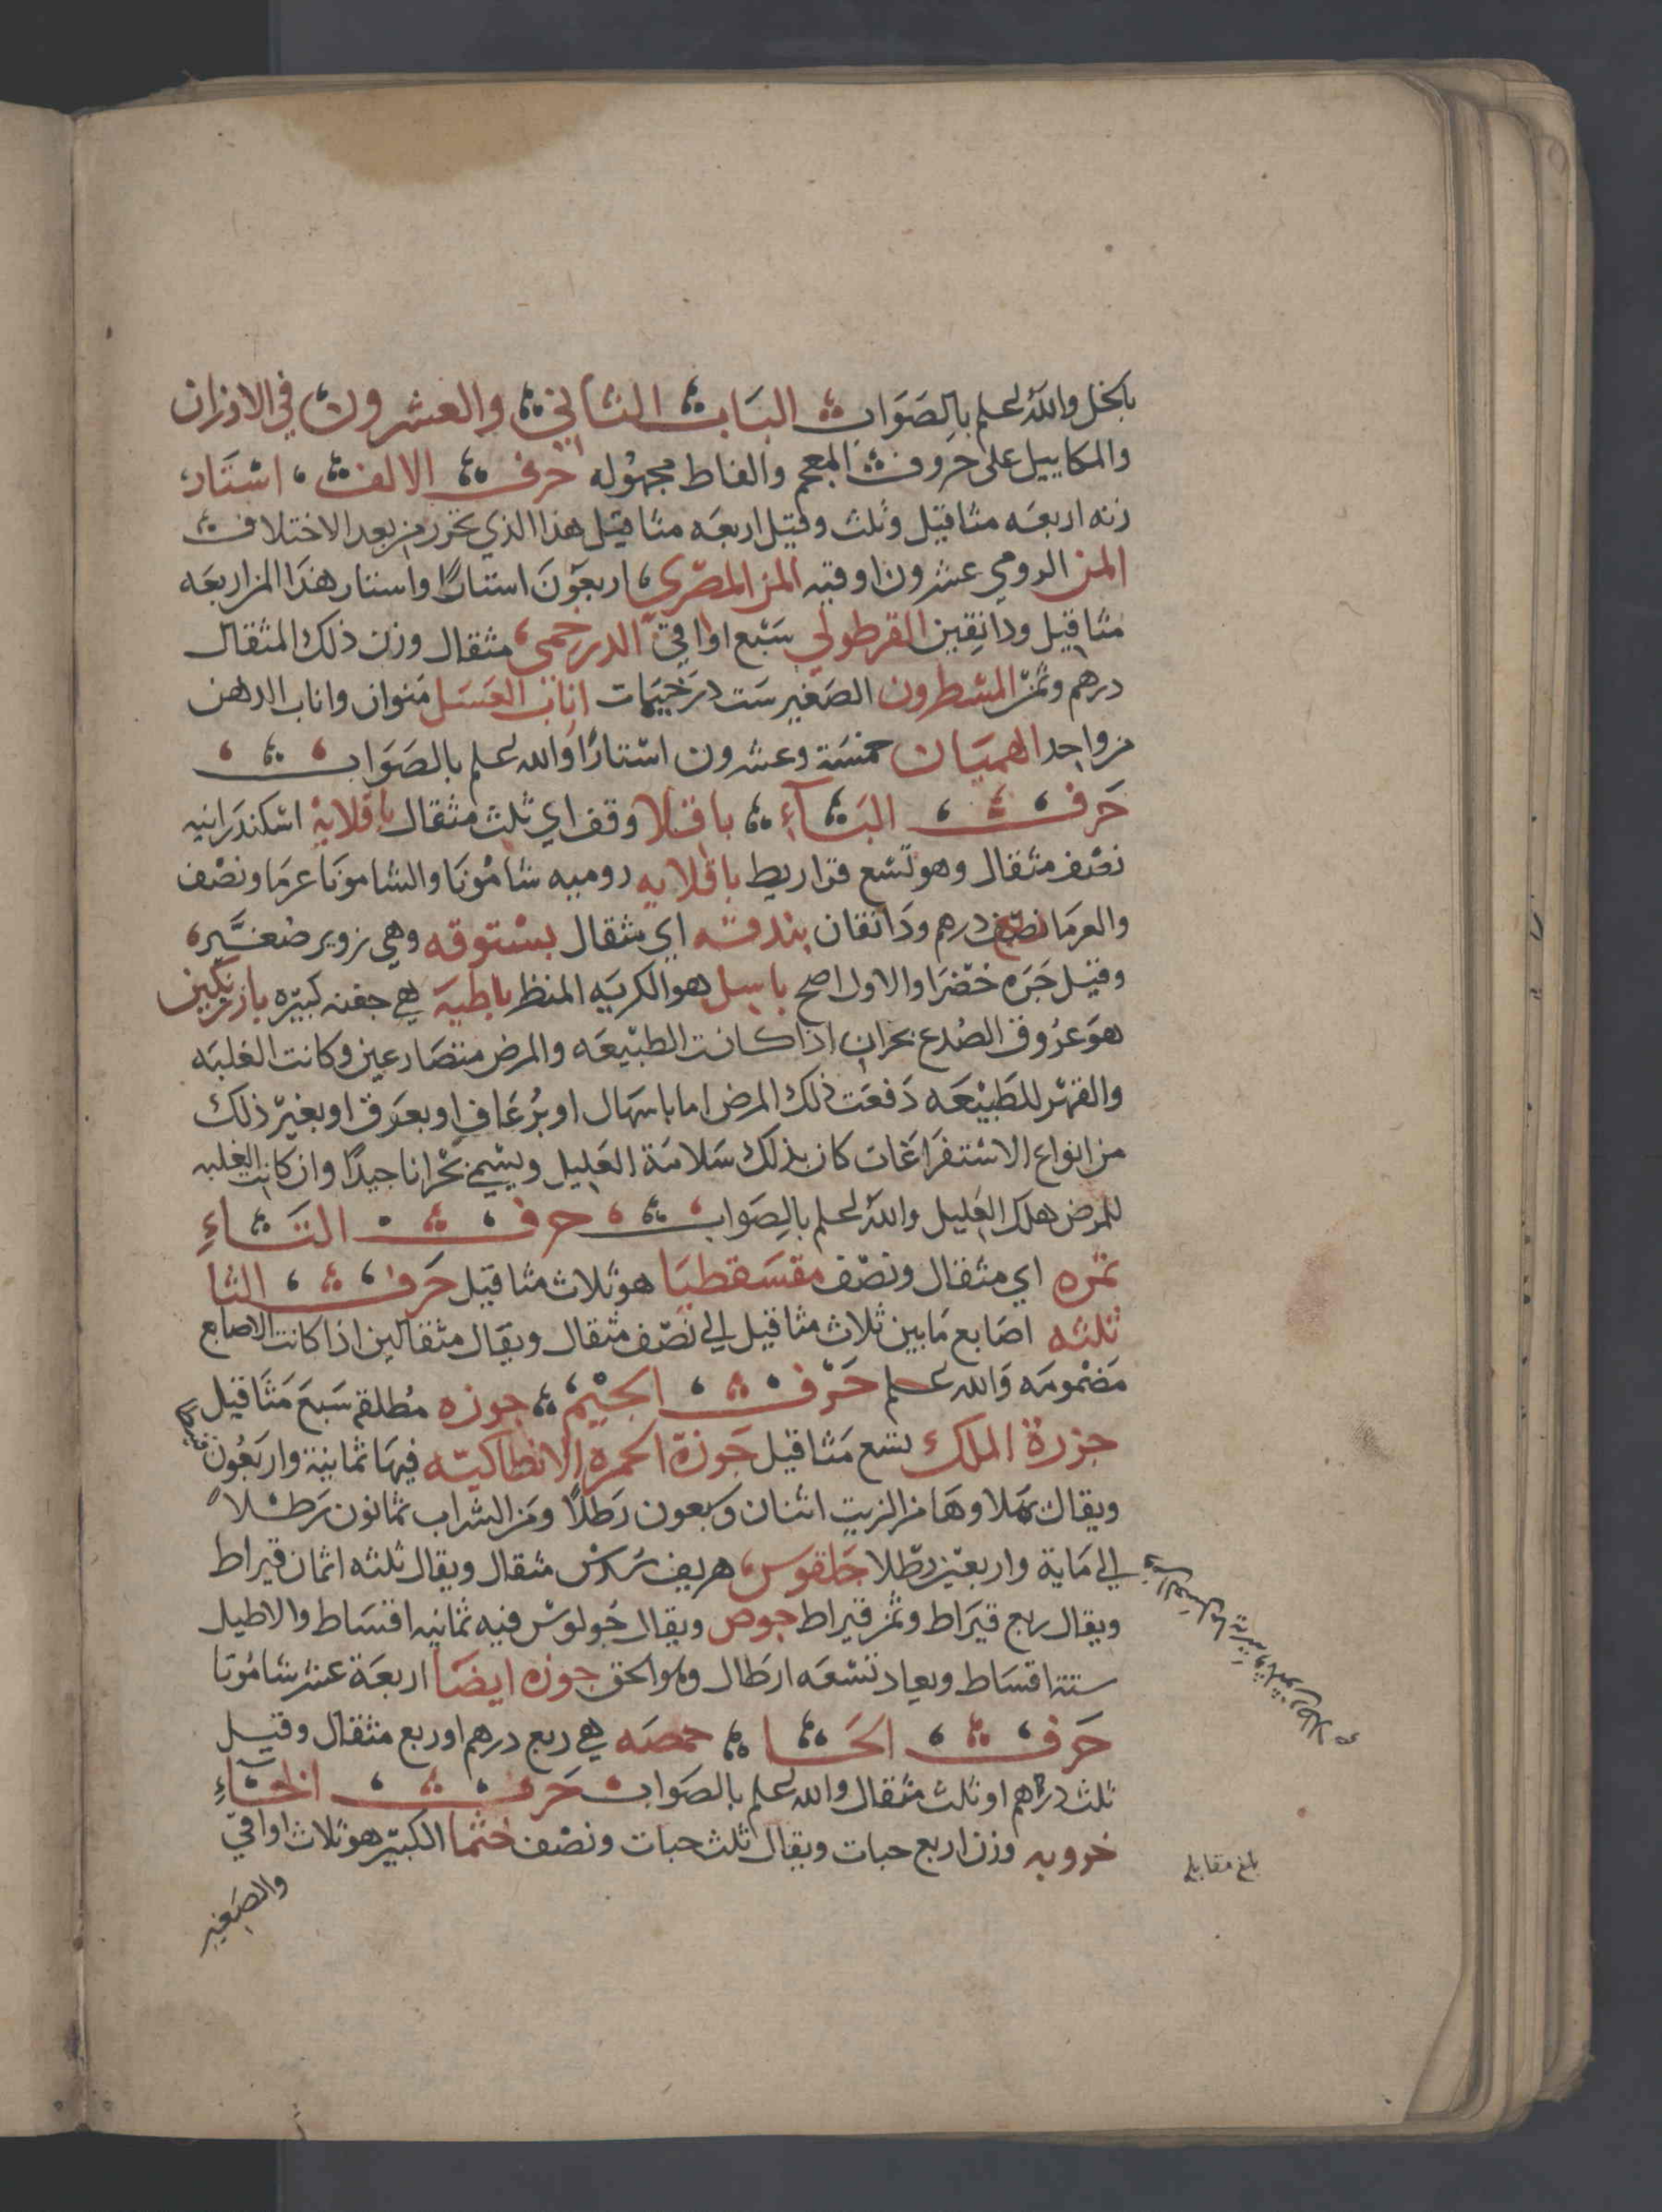 بالخل والله اعلم بالصواب الباب الثاني والعشرون في الاوزان
والمكاييل على حروف المعجم والفاظ مجهوله حرف الالف استار
زنه اربعه مثاقيل وثلث وقيل اربعه مثاقيل هذا الذي تحرر من بعد الاختلاف
المن الرومي عشرون اوقيه المن المصري اربعون استارًا واستار هذا المن اربعه
مثاقيل ودانقين القرطولي سبع اواقي الدرخمي مثقال وزن ذلك المثقال
درهم وثمن المسطرون الصغير ست درخيمات اناب العسل منوان واناب الدهن
من واحد الهميان خمسة وعشرون استارًا والله اعلم بالصواب
حرف الباء باقلا وقف اي ثلث مثقال باقلاية اسكندرانيه
نصف مثقال وهو تسع قراريط باقلايه روميه شامونا والشامونا عرما ونصف
والعرما نصف درهم ودانقان بندقه اي مثقال بستوقه وهي زوير صغير
وقيل جره خضرا والاول اصح باسل هو الكريه المنظر باطية هي جفنه كبيره بازرنكين
هو عروق الصدع بحران اذا كانت الطبيعه والمرض متصارعين وكانت الغلبه
والقهر للطبيعه دفعت ذلك المرض اما باسهال او برعاف او بعرق او بغير ذلك
من انواع الاستفراغات كان بذلك سلامة العليل ويسمي بحرانا جيدًا وان كانت الغلبه
للمرض هلك العليل والله اعلم بالصواب حرف التاء
تمره اي مثقال ونصف مقسقطيا هو ثلاث مثاقيل حرف الثا
ثلثه اصابع ما بين ثلاث مثاقيل الي نصف مثقال ويقال مثقالين اذا كانت الاصابع
مضمومه والله اعلم حرف الجيم جوزه مطلقه سبع مثاقيل
جزرة الملك تسع مثاقيل جوزة الحمره الانطاكيه فيها ثمانية واربعون
ويقال ملاوها من الزيت اثنان وسبعون رطلًا ومن الشراب ثمانون رطلًا
الي مايه واربعين رطلا جلقوس هريف سدس مثقال ويقال ثلثه اثمان قيراط
ويقال ربع قيراط وثمن قيراط جوص ويقال جولوس فيه ثمانيه اقساط والاطيل
ستة اقساط ويعاد تسعه ارطال وهو الحق جوزه ايضا اربعة عشر شامونا
حرف الحا حمصه هي ربع درهم او ربع مثقال وقيل
ثلث دراهم او ثلث مثقال والله اعلم بالصواب حرف الخاء
خروبه وزن اربع حبات ويقال ثلث حبات ونصف خثما الكبير هو ثلاث اواقي
بلغ مقابله
والصغير